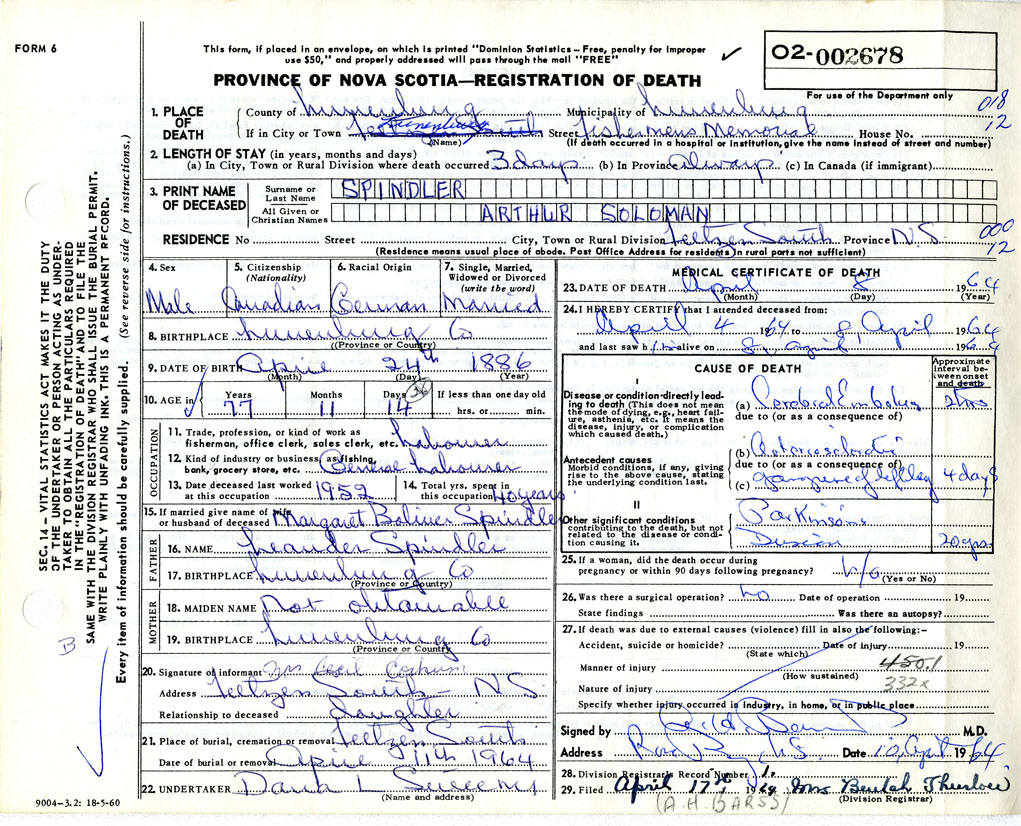 FORM 6
This form, if placed in an envelope, on which is printed "Dominion Statistics – Free, penalty for improper
use $50," and properly addressed will pass through the mail "FREE"
✓
02-002678
PROVINCE OF NOVA SCOTIA—REGISTRATION OF DEATH
For use of the Department only
018
12
1. PLACE OF DEATH
County of Lunenburg Municipality of Lunenburg
If in City or Town Lunenburg Street Fishermens Memorial House No.
(Name) (If death occurred in a hospital or institution, give the name instead of street and number)
2. LENGTH OF STAY (in years, months and days)
(a) In City, Town or Rural Division where death occurred 3 days (b) In Province always (c) In Canada (if immigrant)
3. PRINT NAME OF DECEASED
Surname or Last Name SPINDLER
All Given or Christian Names ARTHUR SOLOMAN
000
12
RESIDENCE No Street City, Town or Rural Division Feltzen South Province N.S
(Residence means usual place of abode. Post Office Address for residents in rural parts not sufficient)
4. Sex Male
5. Citizenship (Nationality) Canadian
6. Racial Origin German
7. Single, Married, Widowed or Divorced (write the word) Married
8. BIRTHPLACE Lunenburg Co
(Province or Country)
9. DATE OF BIRTH April 24th 1886
(Month) (Day) (Year)
10. AGE in Years 77 Months 11 Days 14 If less than one day old hrs. or min.
OCCUPATION
11. Trade, profession, or kind of work as fisherman, office clerk, sales clerk, etc. Labourer
12. Kind of industry or business, as fishing, bank, grocery store, etc. General Labourer
13. Date deceased last worked at this occupation 1952
14. Total yrs. spent in this occupation 40 years
15. If married give name of wife or husband of deceased Margaret Spindler
FATHER
16. NAME Leander Spindler
17. BIRTHPLACE Lunenburg Co
(Province or Country)
MOTHER
18. MAIDEN NAME Not obtainable
19. BIRTHPLACE Lunenburg Co
(Province or Country)
20. Signature of informant Mrs Cecil
Address Feltzen South – N.S.
Relationship to deceased daughter
21. Place of burial, cremation or removal Feltzen South
Date of burial or removal April 11th 1964
22. UNDERTAKER Dana L Sweeny
(Name and address)
MEDICAL CERTIFICATE OF DEATH
23. DATE OF DEATH April 8 1964
(Month) (Day) (Year)
24. I HEREBY CERTIFY that I attended deceased from:
April 4 1964 to 8, April 1964
and last saw him alive on 8, April 1964
CAUSE OF DEATH
Approximate interval between onset and death
I
Disease or condition directly leading to death (This does not mean the mode of dying, e.g., heart failure, asthenia, etc. It means the disease, injury, or complication which caused death.)
(a) Cerebral Embolus 2 hrs
due to (or as a consequence of)
Antecedent causes
Morbid conditions, if any, giving rise to the above cause, stating the underlying condition last.
(b)
due to (or as a consequence of)
(c) gangrene of left leg 4 days
II
Other significant conditions contributing to the death, but not related to the disease or condition causing it.
Parkinsons
20 yrs.
25. If a woman, did the death occur during pregnancy or within 90 days following pregnancy? N/a (Yes or No)
26. Was there a surgical operation? no Date of operation 19
State findings Was there an autopsy?
27. If death was due to external causes (violence) fill in also the following:–
Accident, suicide or homicide? Date of injury 19
(State which)
Manner of injury 450.1
(How sustained) 332x
Nature of injury
Specify whether injury occurred in industry, in home, or in public place
Signed by M.D.
Address Date 10, April 1964
28. Division Registrar's Record Number 1.
29. Filed April 17th 1964 Mrs Beulah
(A.H. BARSS) (Division Registrar)
SEC. 14 – VITAL STATISTICS ACT MAKES IT THE DUTY
OF THE UNDERTAKER OR PERSON ACTING AS UNDER-
TAKER TO OBTAIN ALL THE PARTICULARS REQUIRED
IN THE "REGISTRATION OF DEATH" AND TO FILE THE
SAME WITH THE DIVISION REGISTRAR WHO SHALL ISSUE THE BURIAL PERMIT.
WRITE PLAINLY WITH UNFADING INK. THIS IS A PERMANENT RECORD.
Every item of information should be carefully supplied. (See reverse side for instructions.)
B
9004-3.2: 18-5-60